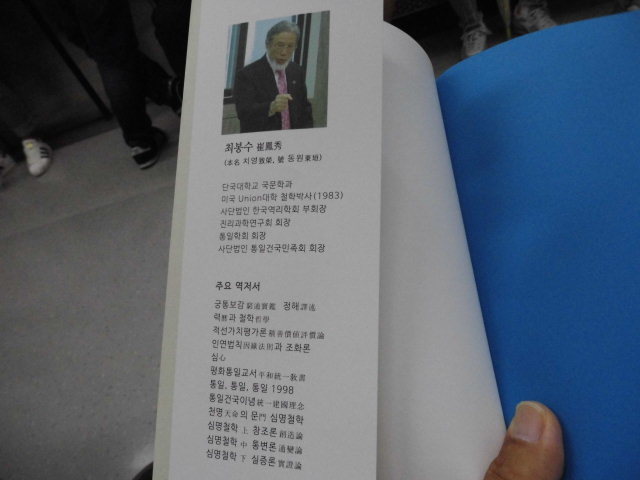 최봉수 崔鳳秀
(本名 치영致榮, 號 동원東垣)
단국대학교 국문학과
미국 Union대학 철학박사(1983)
사단법인 한국역리학회 부회장
진리과학연구회 회장
통일학회 회장
사단법인 통일건국민족회 회장
주요 역저서
궁통보감窮通寶鑑 정해譯述
력曆과 철학哲學
적선가치평가론積善價値評價論
인연법칙因緣法則과 조화론
심心
평화통일교서平和統一敎書
통일, 통일, 통일 1998
통일건국이념統一建國理念
천명天命의 문門 심명철학
심명철학 上 창조론創造論
심명철학 中 통변론通變論
심명철학 下 실증론實證論